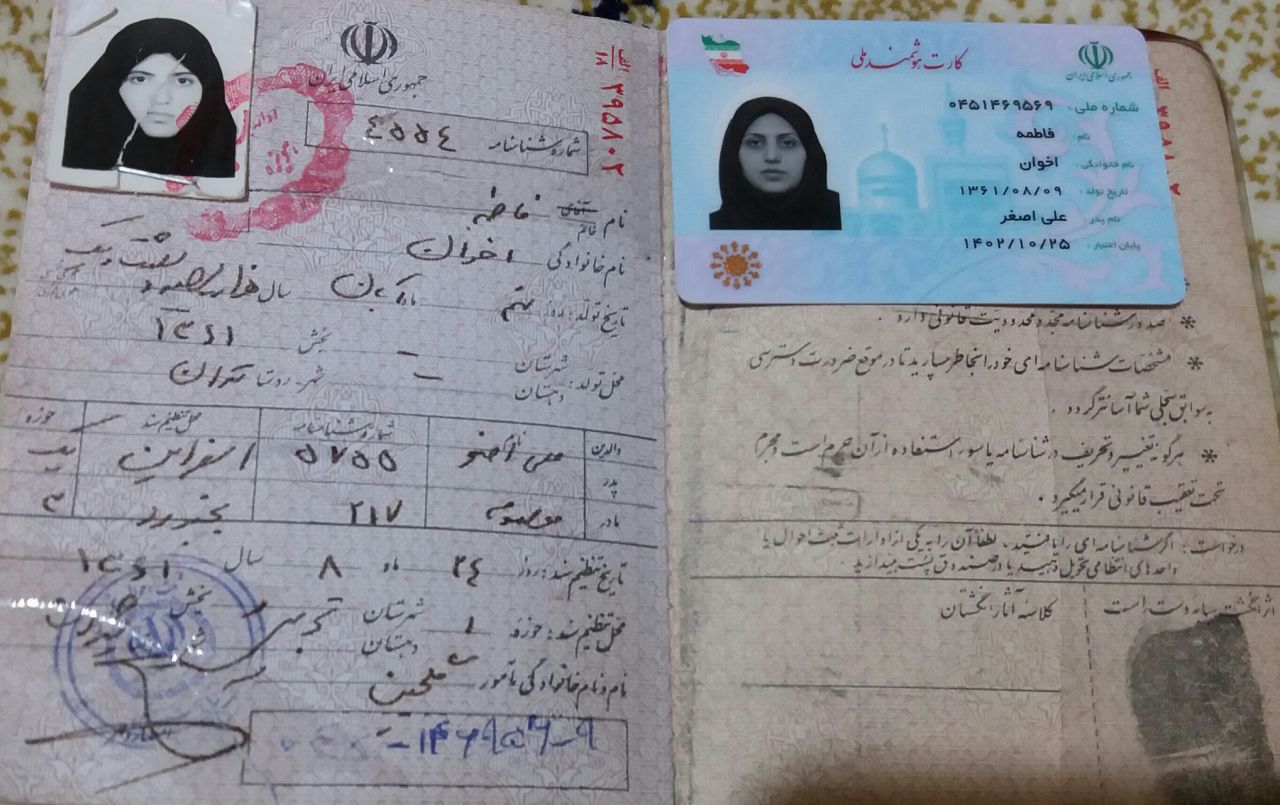 جمهوری اسلامی ایران
الف
۱۸
۳۹۵۸۰۲
شماره شناسنامه ٤٥٥٤
نام فاطمه
نام خانوادگی اخوان
تاریخ تولد: روز نهم ماه آبان سال هزار و سیصد و شصت و یک
۱۳٦۱
محل تولد: شهرستان — بخش
دهستان — شهر - روستا تهران
والدین نام شماره شناسنامه محل تنظیم سند حوزه
پدر علی اصغر ٥٧٥٥ اسفراین یک
مادر معصومه ۲۱۷ بجنورد ۳
تاریخ تنظیم سند: روز ۲٤ ماه ۸ سال ۱۳٦۱
محل تنظیم سند: حوزه ۱ شهرستان بخش
دهستان
نام و نام خانوادگی مأمور
کارت هوشمند ملی
جمهوری اسلامی ایران
شماره ملی : ۰۴۵۱۴۶۹۵۶۹
نام : فاطمه
نام خانوادگی : اخوان
تاریخ تولد : ۱۳۶۱/۰۸/۰۹
نام پدر : علی اصغر
پایان اعتبار : ۱۴۰۲/۱۰/۲۵
* صدور شناسنامه مجدد محدودیت قانونی دارد .
* مشخصات شناسنامه ای خود را بخاطر بسپارید تا در موقع ضرورت دسترسی
به سوابق سجلی شما آسانتر گردد .
* هرگونه تغییر و تحریف در شناسنامه یا سوء استفاده از آن جرم است و مجرم
تحت تعقیب قانونی قرار میگیرد .
درخواست : اگر شناسنامه ای را یافتید ، لطفاً آن را به یکی از ادارات ثبت احوال یا
واحدهای انتظامی تحویل دهید یا در صندوق پست بیندازید .
اثر انگشت سبابه دست راست
کلاسه آثار انگشتان